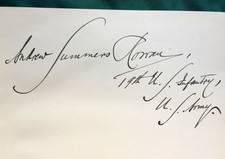 Andrew Summers Rowan,
19th U. S. Infantry,
U. S. Army.